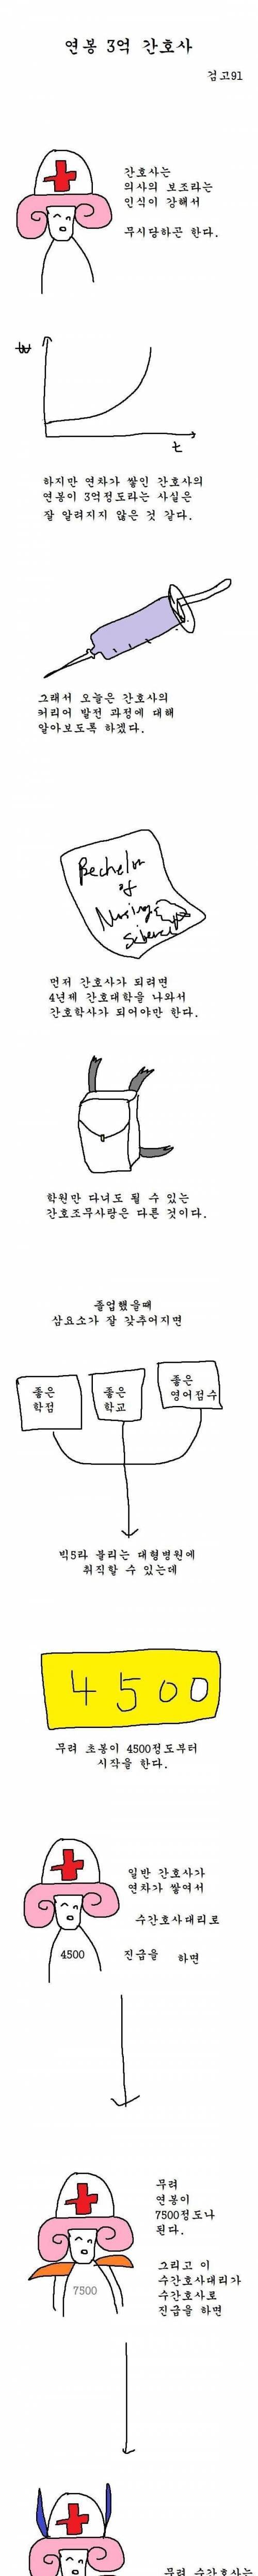 연봉 3억 간호사
검고91
간호사는
의사의 보조라는
인식이 강해서
무시당하곤 한다.
₩
t
하지만 연차가 쌓인 간호사의
연봉이 3억정도라는 사실은
잘 알려지지 않은 것 같다.
그래서 오늘은 간호사의
커리어 발전 과정에 대해
알아보도록 하겠다.
Bechelor
of
Nursing
Science
먼저 간호사가 되려면
4년제 간호대학을 나와서
간호학사가 되어야만 한다.
학원만 다녀도 될 수 있는
간호조무사랑은 다른 것이다.
졸업했을때
삼요소가 잘 갖추어지면
좋은
학점
좋은
학교
좋은
영어점수
빅5라 불리는 대형병원에
취직할 수 있는데
4500
무려 초봉이 4500정도부터
시작을 한다.
일반 간호사가
연차가 쌓여서
수간호사대리로
진급을 하면
4500
무려
연봉이
7500정도나
된다.
그리고 이
수간호사대리가
수간호사로
진급을 하면
7500
무려 수간호사는